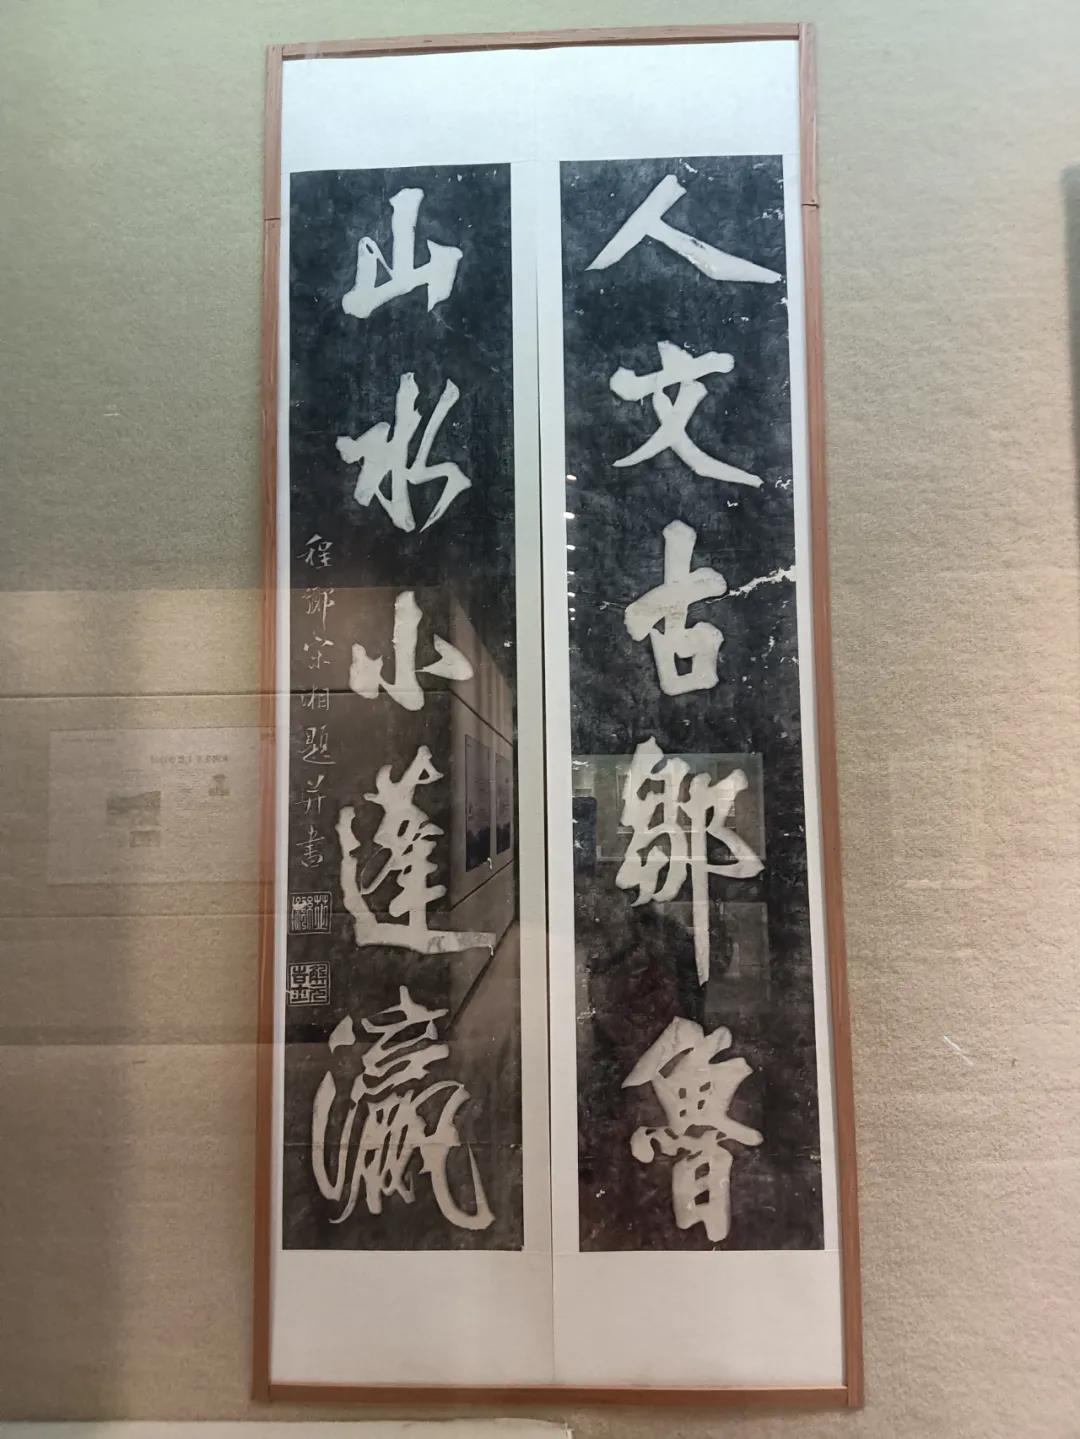 人文古鄒魯
山水小蓬瀛
程鄉宋湘題并書